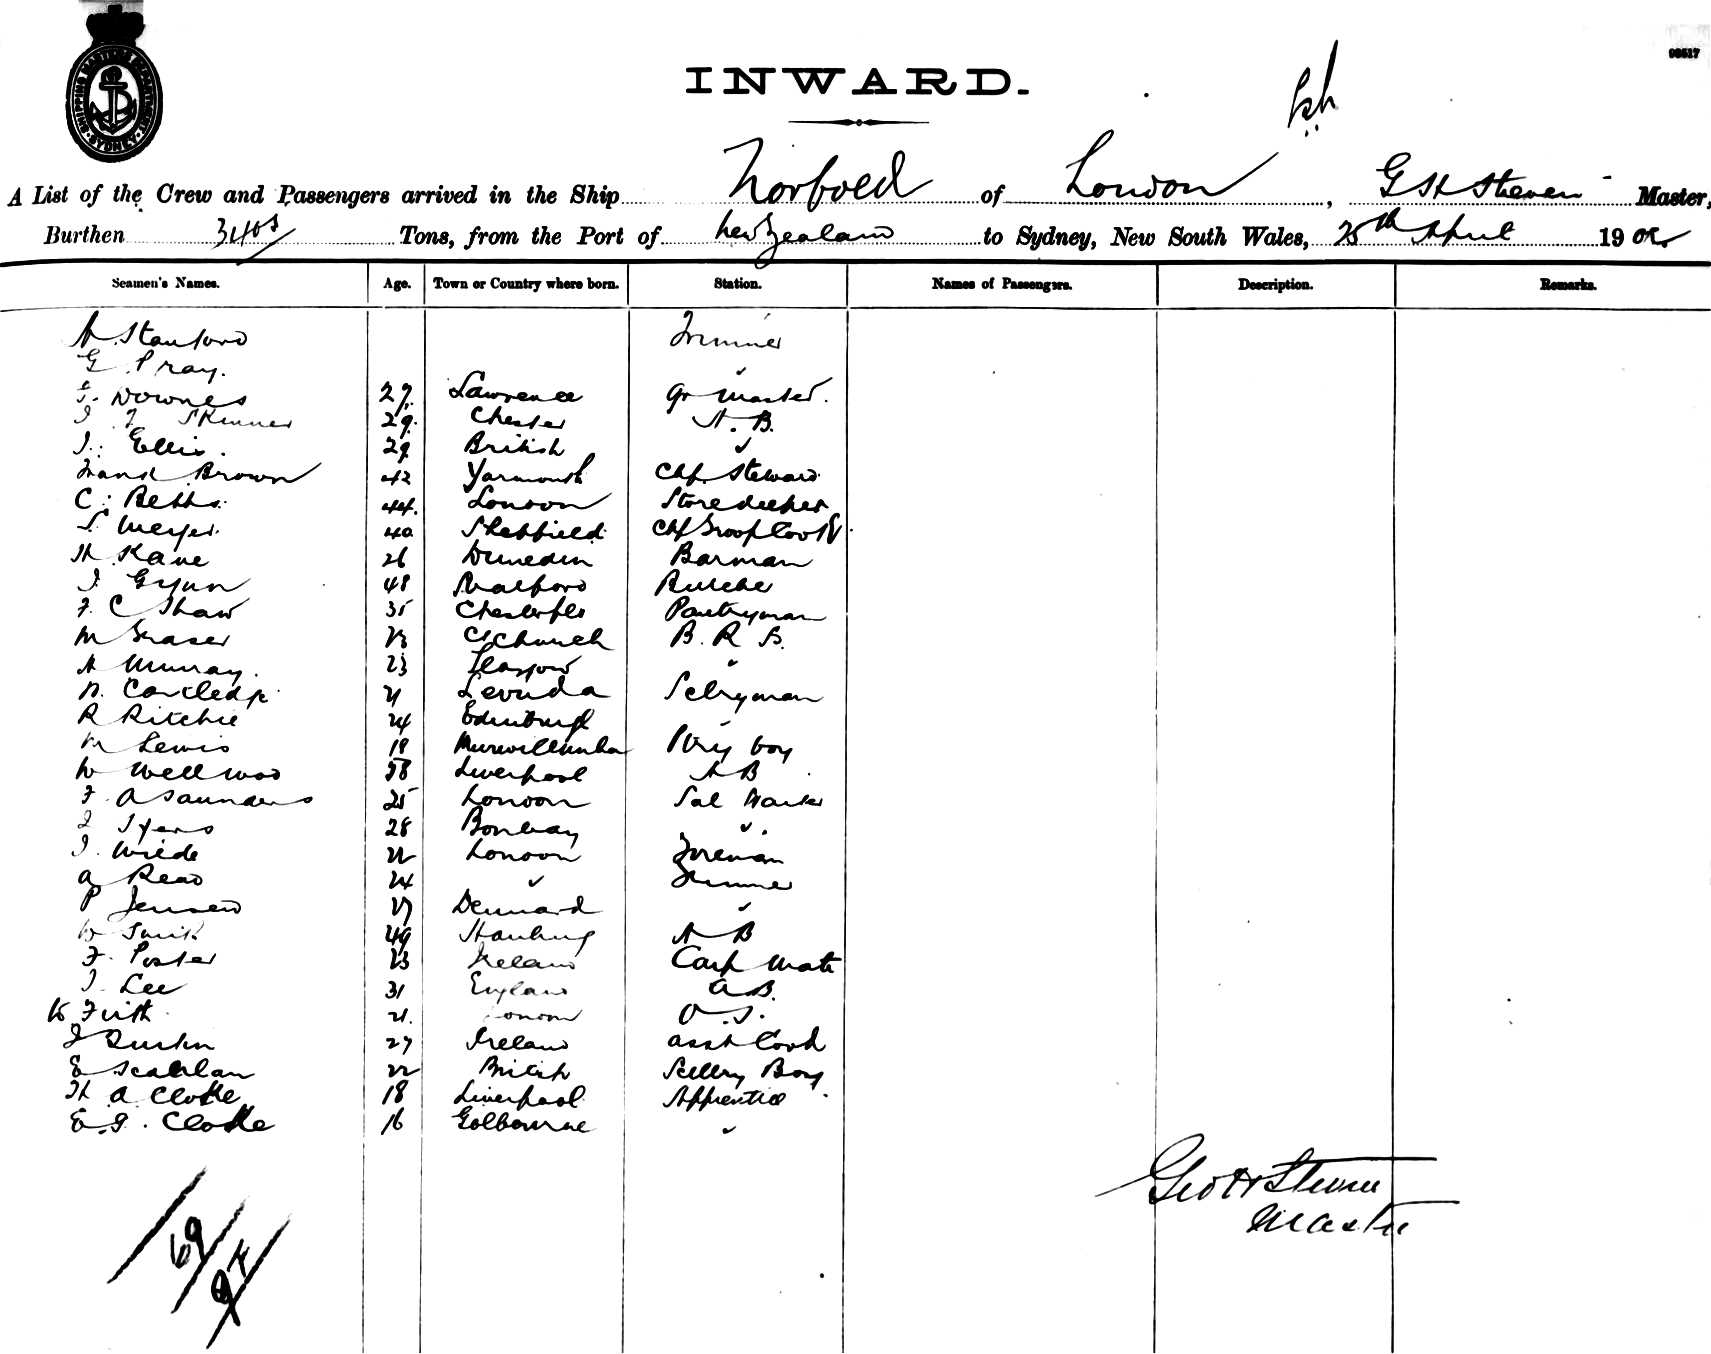 98517
SHIPPING MASTERS DEPARTMENT SYDNEY
INWARD.
A List of the Crew and Passengers arrived in the Ship Norfolk of London, G H Steven Master,
Burthen 3408 Tons, from the Port of New Zealand to Sydney, New South Wales, 25th April 1902
Seamen's Names. Age. Town or Country where born. Station. Names of Passengers. Description. Remarks.
H. Stanford Trimmer
G Pray. ✓
G. Downes 27 Lawrence Qr Master.
J J Skinner 29 Chester A.B.
J. Ellis. 29 British ✓
Frank Brown 42 Yarmouth Chf Steward
C. Betts 44 London Storekeeper
S. Meyer 40 Sheffield Chf Troop Cook
H Kane 26 Dunedin Barman
J. Glynn 48 Butcher
F. C Shaw 35 Chesterfld Pantryman
M Fraser 23 ChChurch B. R. S.
A Murray. 23 Glasgow ✓
Cartledge 21 Levuka Sclryman
R Ritchie 24 Edinburgh ✓
M Lewis 19 Murwillumba Ptry boy
W Wellwood Liverpool A B
F. A Saunders 25 London Sal Waiter
J Syers 28 Bombay ✓
J. Wride 22 London Fireman
A Read 24 ✓ Trimmer
P Jensen 27 Denmark ✓
W 49 Hamburg A B
F. Foster 23 Ireland Carp Mate
J. Lee 31 England A.B.
W Firth 21. London O.S.
J Durkin 27 Ireland Asst Cook
E Scanlan 22 British Scllery Boy
H A Clode 18 Liverpool Apprentice
E. G. Clode 16 Golbourne ✓
Geo H Steven
Master
69
97